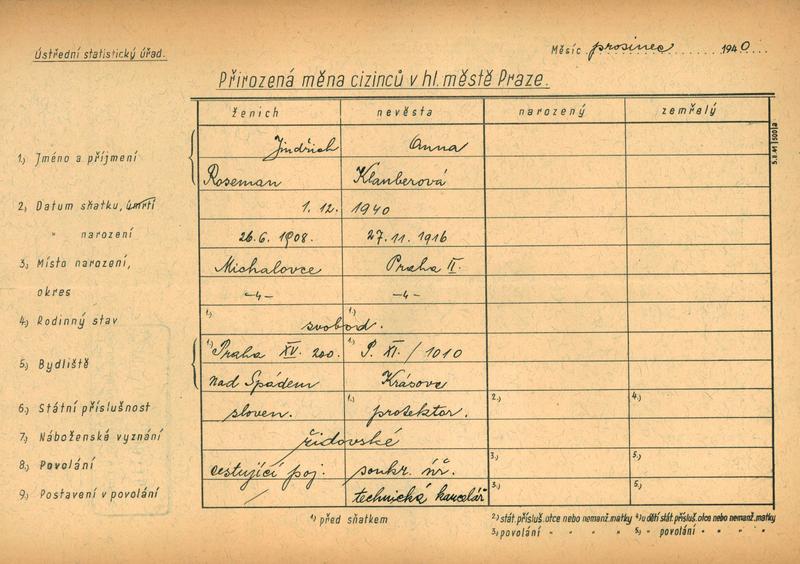 Ústřední statistický úřad.
Měsíc prosinec 1940
Přirozená měna cizinců v hl. městě Praze.
ženich nevěsta narozený zemřelý
1.) Jméno a příjmení Jindřich Anna
Roseman Klauberová
2.) Datum sňatku, úmrtí 1. 12. 1940
" narození 26. 6. 1908. 27. 11. 1916
3.) Místo narození, Michalovce Praha II.
okres -"- -"-
4.) Rodinný stav 1.) 1.) svobod.
5.) Bydliště 1.) Praha XV. 200. 1.) P. XI. / 1010
nad Spádem Krásova
6.) Státní příslušnost sloven. 1.) protektor. 2.) 4.)
7.) Náboženské vyznání židovské
8.) Povolání cestující poj. soukr. úř. 3.) 5.)
9.) Postavení v povolání / technická kancelář 3.) 5.)
1.) před sňatkem
2.) stát. přísluš. otce nebo nemanž. matky 4.) u dětí stát. přísluš. otce nebo nemanž. matky
3.) povolání " " " " 5.) povolání " " " "